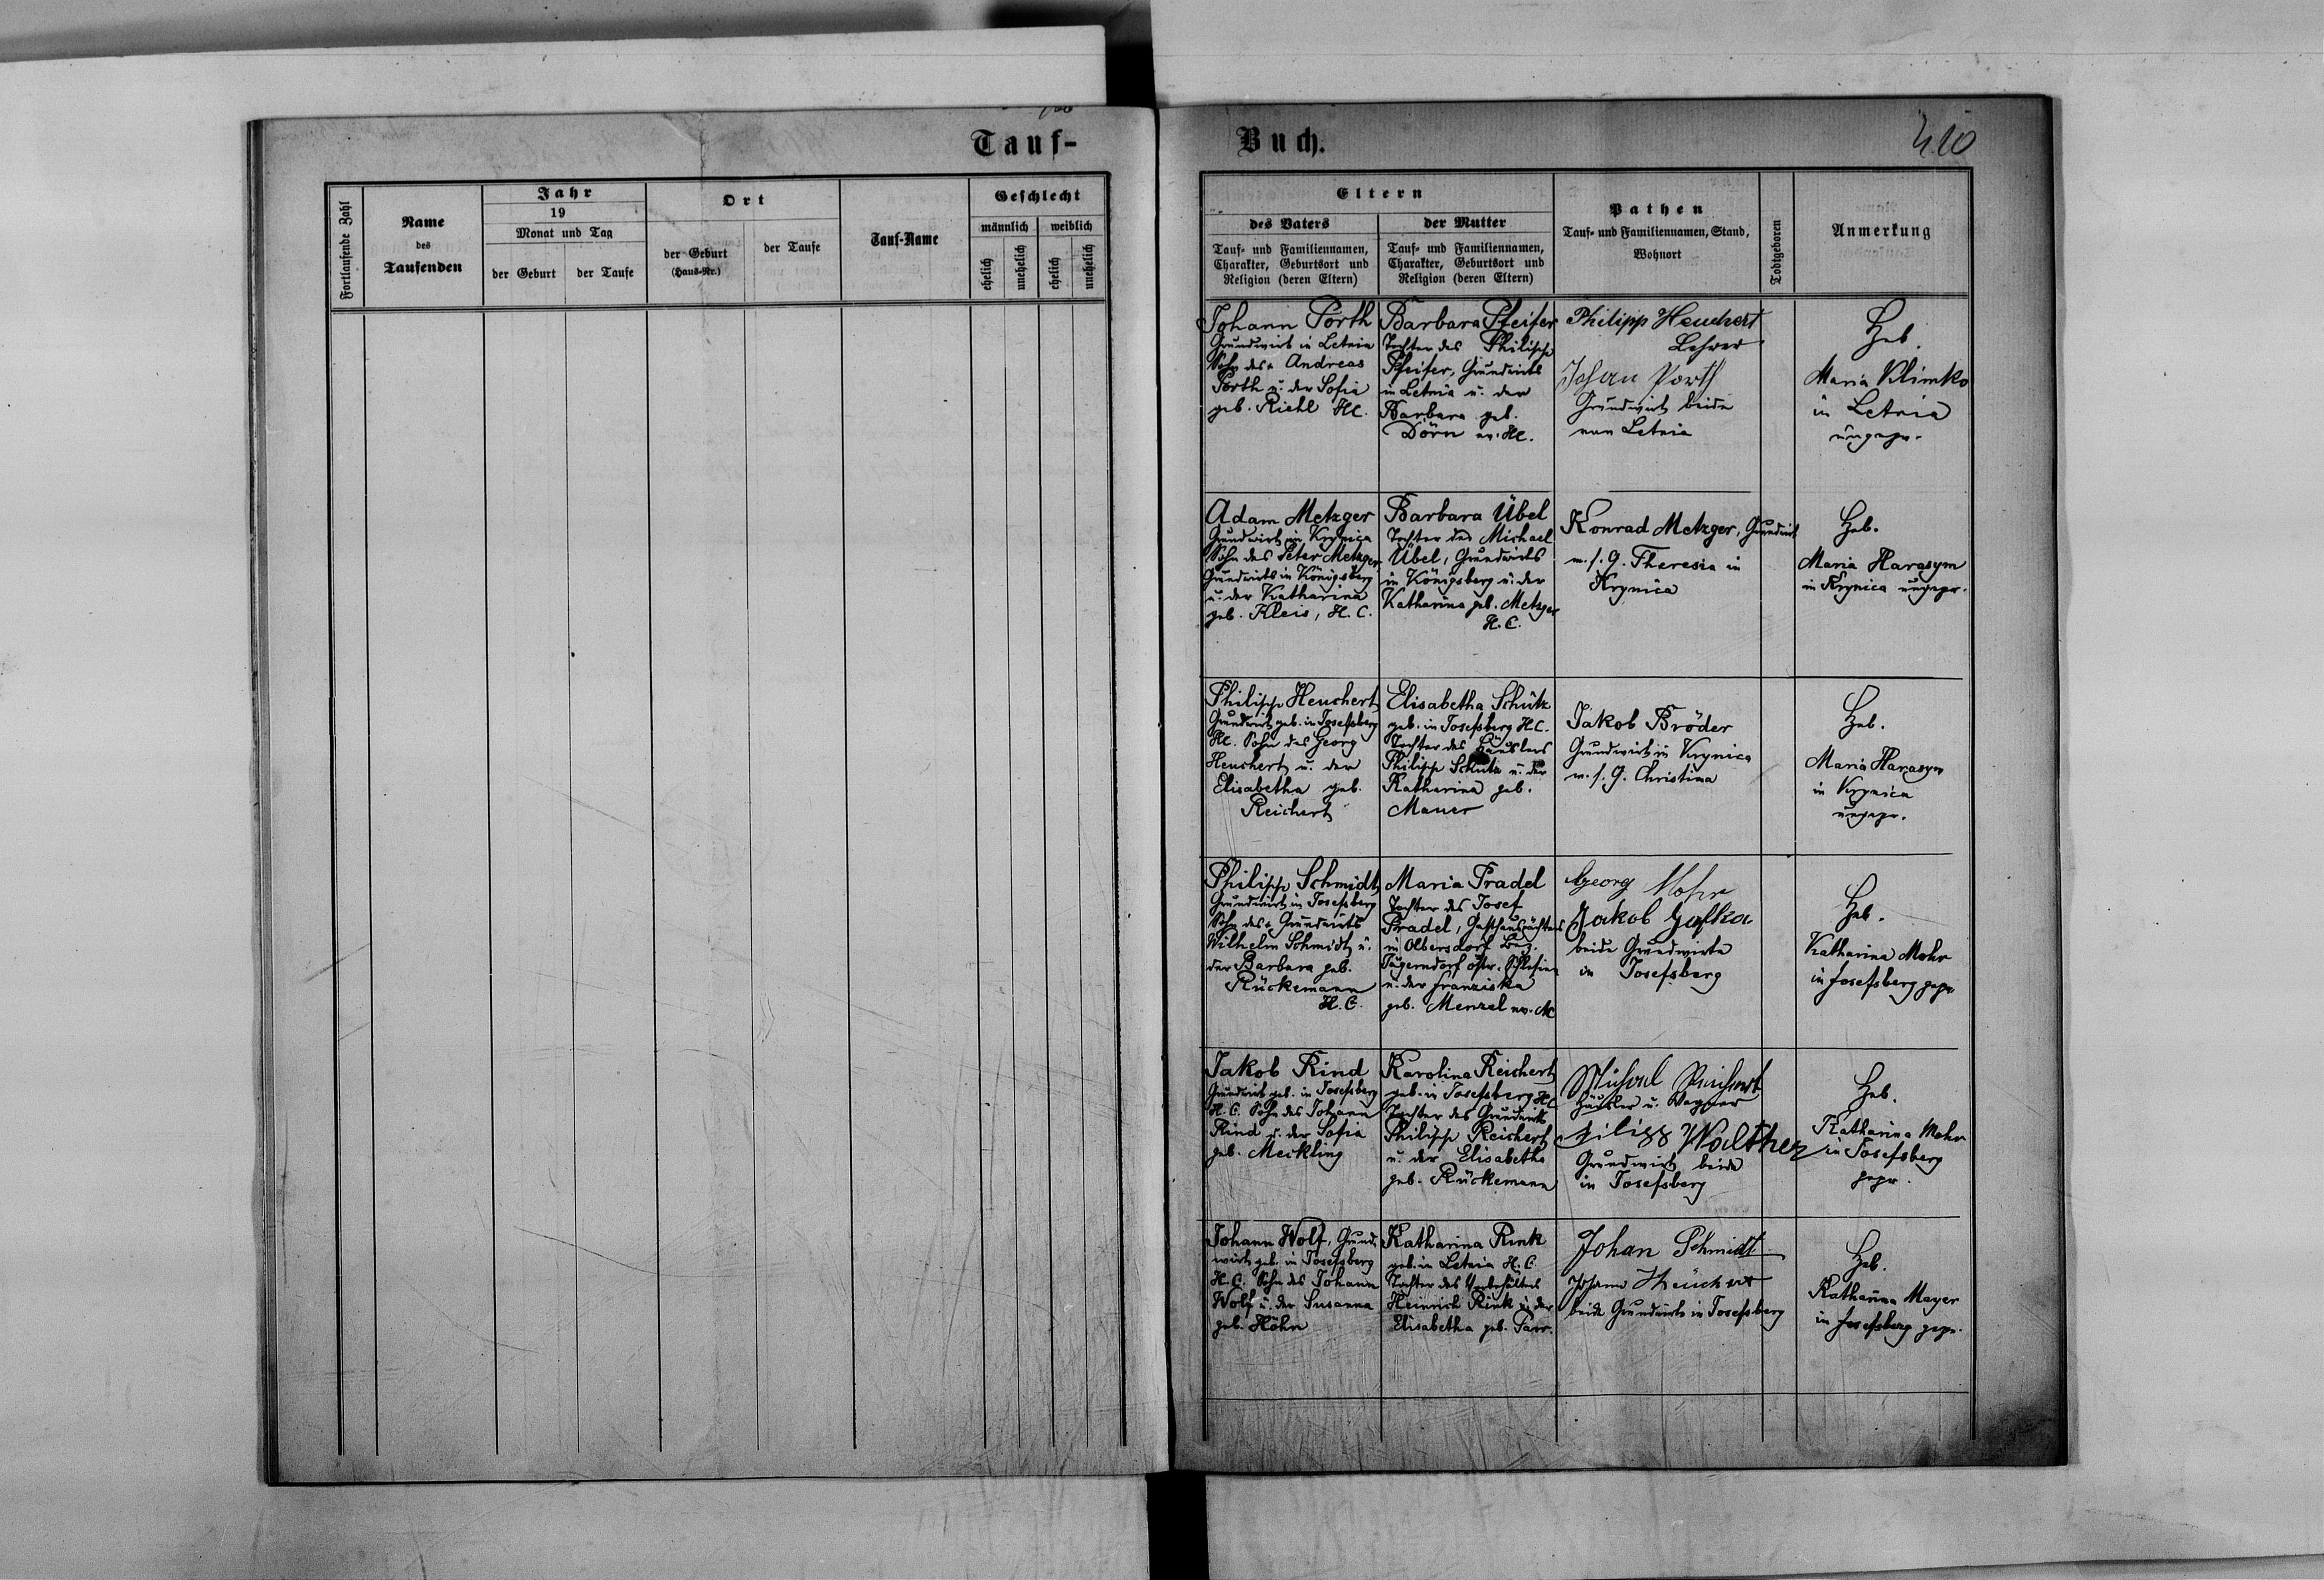 Tauf-
Fortlaufende Zahl
Name
des
Taufenden
Jahr
19
Monat und Tag
der Geburt
der Taufe
Ort
der Geburt
(Haus-Nr.)
der Taufe
Tauf-Name
Geschlecht
männlich
weiblich
ehelich
unehelich
ehelich
unehelich
Buch.
410
Eltern
des Vaters
Tauf- und Familiennamen,
Charakter, Geburtsort und
Religion (deren Eltern)
der Mutter
Tauf- und Familiennamen,
Charakter, Geburtsort und
Religion (deren Eltern)
Pathen
Tauf- und Familiennamen, Stand,
Wohnort
Todtgeboren
Anmerkung
Johann Porth
Grundwirt in Letnia
Sohn des Andreas
Porth u. der Sofia
geb. Riehl HC.
Barbara Pfeifer
Tochter des Philipp
Pfeifer, Grundwirts
in Letnia u. der
Barbara geb.
Dörn ev. HC.
Philipp Heuchert
Lehrer
Johan Porth
Grundwirt beide
von Letnia
Heb.
Maria Klimko
in Letnia
ungepr.
Adam Metzger
Grundwirt in Krynica
Sohn des Peter Metzger
Grundwirts in Königsberg
u. der Katharina
geb. Kleis, H.C.
Barbara Übel
Tochter des Michael
Übel, Grundwirts
in Königsberg u. der
Katharina geb. Metzger
H.C.
Konrad Metzger, Grundwirt
m. s. G. Theresia in
Krynica
Heb.
Maria Harasym
in Krynica ungepr.
Philipp Heuchert
Grundwirt geb. in Josefsberg
HC. Sohn des Georg
Heuchert u. der
Elisabetha geb.
Reichert
Elisabetha Schütz
geb. in Josefsberg HC.
Tochter des Häuslers
Philipp Schütz u. der
Katharina geb.
Mauer
Jakob Bröder
Grundwirt in Krynica
m. s. G. Christina
Heb.
Maria Harasym
in Krynica
ungepr.
Philipp Schmidt
Grundwirt in Josefsberg
Sohn des Grundwirts
Wilhelm Schmidt u.
der Barbara geb.
Rückemann
H.C.
Maria Pradel
Tochter des Josef
Pradel, Gasthauspächters
in Olbersdorf Bez.
Jägerndorf östr. Schlesien
u. der Franziska
geb. Menzel ev. AC
Georg Mohr
Jakob
beide Grundwirte
in Josefsberg
Heb.
Katharina Mohr
in Josefsberg gepr.
Jakob Rind
Grundwirt geb. in Josefsberg
H.C. Sohn des Johann
Rind u. der Sofia
geb. Meckling
Karolina Reichert
geb. in Josefsberg HC
Tochter des Grundwirts
Philipp Reichert
u. der Elisabetha
geb. Rückemann
Michael Reichert
Häusler u. Wagner
Filipp Walther
Grundwirt beide
in Josefsberg
Heb.
Katharina Mohr
in Josefsberg
gepr.
Johann Wolf, Grund-
wirt geb. in Josefsberg
H.C. Sohn des Johann
Wolf u. der Susanna
geb. Höhn
Katharina Rink
geb. in Letnia H.C.
Tochter des
Heinrich Rink u. der
Elisabetha geb. Parr.
Johan Schmidt
Johann Heuchert
beide Grundwirte in Josefsberg
Heb.
Katharina Mayer
in Josefsberg gepr.